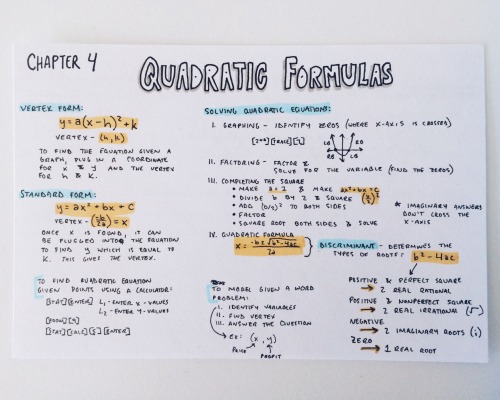 CHAPTER 4
QUADRATIC FORMULAS
VERTEX FORM:
y = a(x-h)² + k
VERTEX - (h, k)
TO FIND THE EQUATION GIVEN A
GRAPH, PLUG IN A COORDINATE
FOR X & Y AND THE VERTEX
FOR h & K.
STANDARD FORM:
y = ax² + bx + c
VERTEX - (-b/2a) = x
ONCE X IS FOUND, IT CAN
BE PLUGGED INTO THE EQUATION
TO FIND Y WHICH IS EQUAL TO
K. THIS GIVES THE VERTEX.
TO FIND QUADRATIC EQUATION
GIVEN POINTS USING A CALCULATOR:
[STAT][ENTER] L₁ - ENTER X-VALUES
L₂ - ENTER Y-VALUES
[ZOOM][9]
[STAT][CALC][5][ENTER]
SOLVING QUADRATIC EQUATIONS:
I. GRAPHING - IDENTIFY ZEROS (WHERE X-AXIS IS CROSSED)
[2ND][TRACE][2]
LB RB
LB RB
II. FACTORING - FACTOR &
SOLVE FOR THE VARIABLE (FIND THE ZEROS)
III. COMPLETING THE SQUARE
• MAKE a = 1 & MAKE ax² + bx = C
• DIVIDE b BY 2 & SQUARE (b/2)²
• ADD (b/2)² TO BOTH SIDES
• FACTOR
• SQUARE ROOT BOTH SIDES & SOLVE
* IMAGINARY ANSWERS
DON'T CROSS THE
X-AXIS
IV. QUADRATIC FORMULA
x = -b ± √b² - 4ac / 2a
DISCRIMINANT - DETERMINES THE
TYPES OF ROOTS:
b² - 4ac
POSITIVE & PERFECT SQUARE
→ 2 REAL RATIONAL
POSITIVE & NONPERFECT SQUARE
→ 2 REAL IRRATIONAL (√)
NEGATIVE
→ 2 IMAGINARY ROOTS (i)
ZERO
→ 1 REAL ROOT
TO MODEL GIVEN A WORD
PROBLEM:
I. IDENTIFY VARIABLES
II. FIND VERTEX
III. ANSWER THE QUESTION
EX: (X, Y)
PRICE
PROFIT